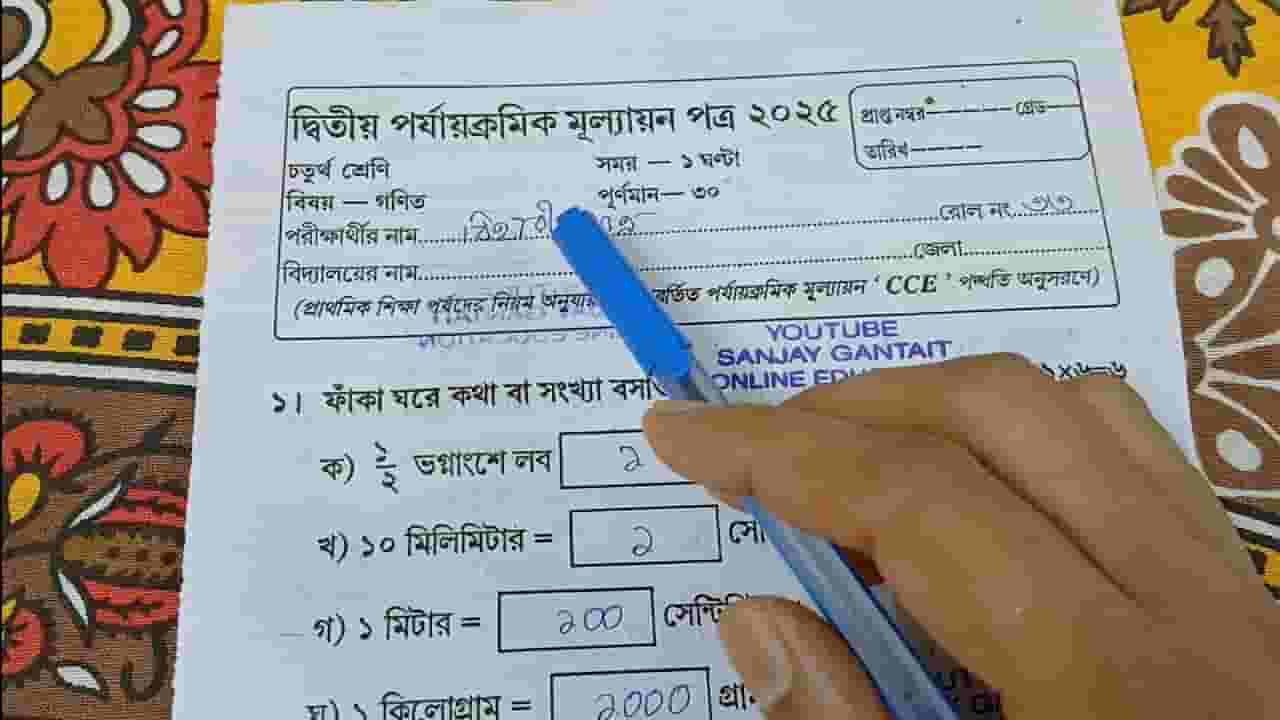 দ্বিতীয় পর্যায়ক্রমিক মূল্যায়ন পত্র ২০২৫
প্রাপ্ত নম্বর গ্রেড
তারিখ
চতুর্থ শ্রেণি সময় — ১ ঘণ্টা
বিষয় — গণিত পূর্ণমান— ৩০
পরীক্ষার্থীর নাম রোল নং
বিদ্যালয়ের নাম জেলা
(প্রাথমিক শিক্ষা পর্ষদের নিয়ম পর্যায়ক্রমিক মূল্যায়ন ‘ CCE ’ পদ্ধতি অনুসরণে)
YOUTUBE
SANJAY GANTAIT
ONLINE
১। ফাঁকা ঘরে কথা বা সংখ্যা ১×৬=৬
ক) ১/২ ভগ্নাংশে লব ১
খ) ১০ মিলিমিটার = ১
গ) ১ মিটার = ১০০
ঘ) ১ কিলোগ্রাম = ১০০০